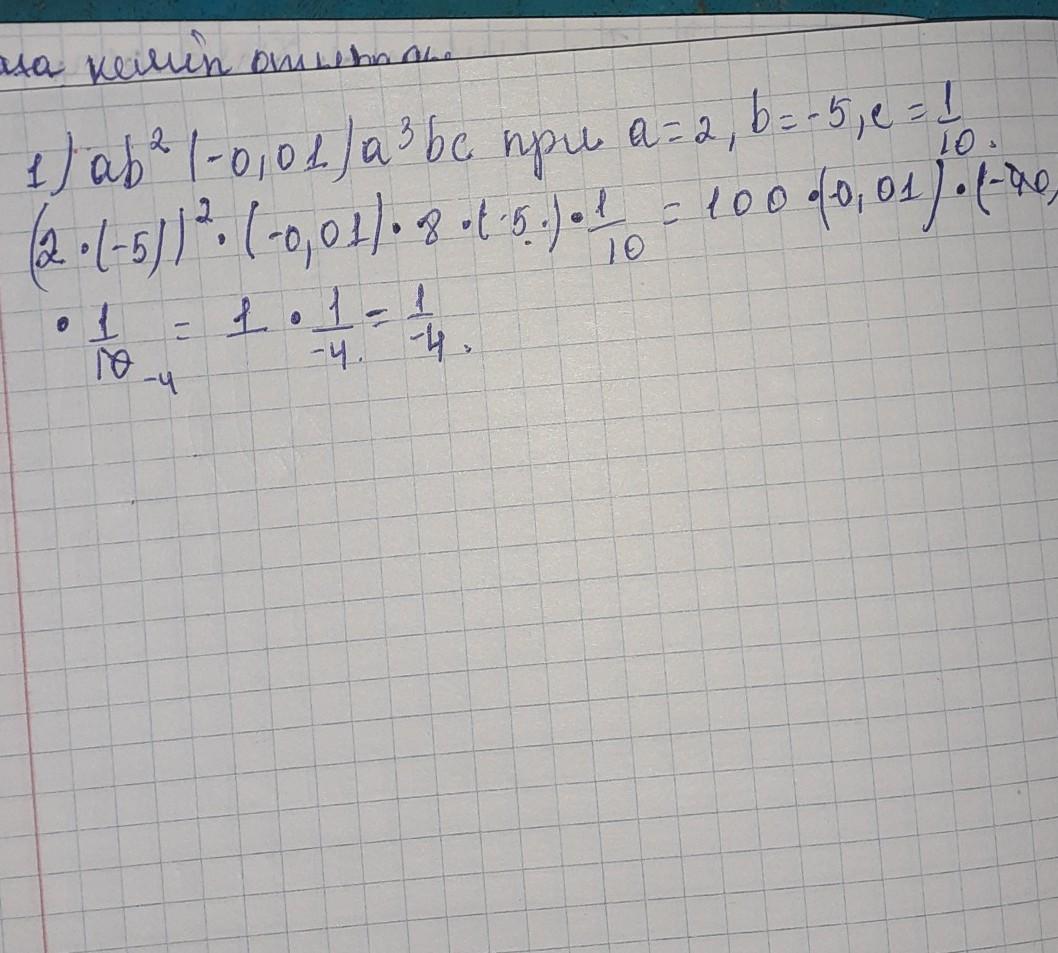 1) ab² (-0,01) a³bc при a=2, b=-5, c=1/10.
(2·(-5))²·(-0,01)·8·(-5)·1/10 = 100·(-0,01)·(-40)
· 1/10 -4 = 1 · 1/-4. = 1/-4.